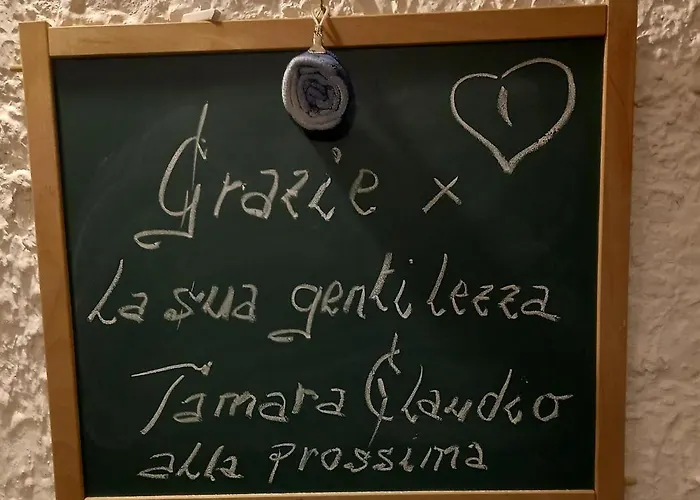 Grazie x
La sua gentilezza
Tamara Claudio
alla prossima